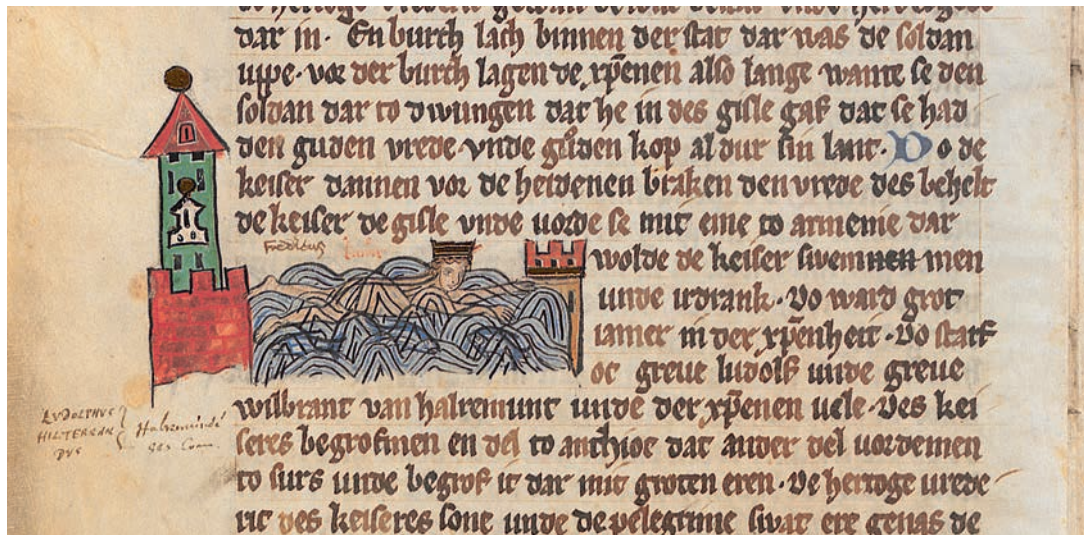 dar in· En burch lach binnen der stat dar was de soldan
uppe· vor der burch lagen de xp̄enen also lange wante se den
soldan dar to dwungen dat he in des gisle gaf dat se had
den guden vrede· vnde guͦden kop al dur sin lant· Do de
keiser dannen vor de heidenen braken den vrede des behelt
de keiser de gisle vnde uorde se mit eme to armenie dar
Fredericus keiser
wolde de keiser swemmen men
unde irdrank· Do ward grot
iamer in der xp̄enheit· Do starf
oc greue ludolf unde greue
LVDOLPHVS
wilbrant van halremunt unde der xp̄enen uele· Des kei
seres begrofmen en del to anthioc dat ander del uordemen
to surs unde begrof it dar mit groten eren· De hertoge vrede
ric des keiseres sone unde de pelegrime swat ere genas de